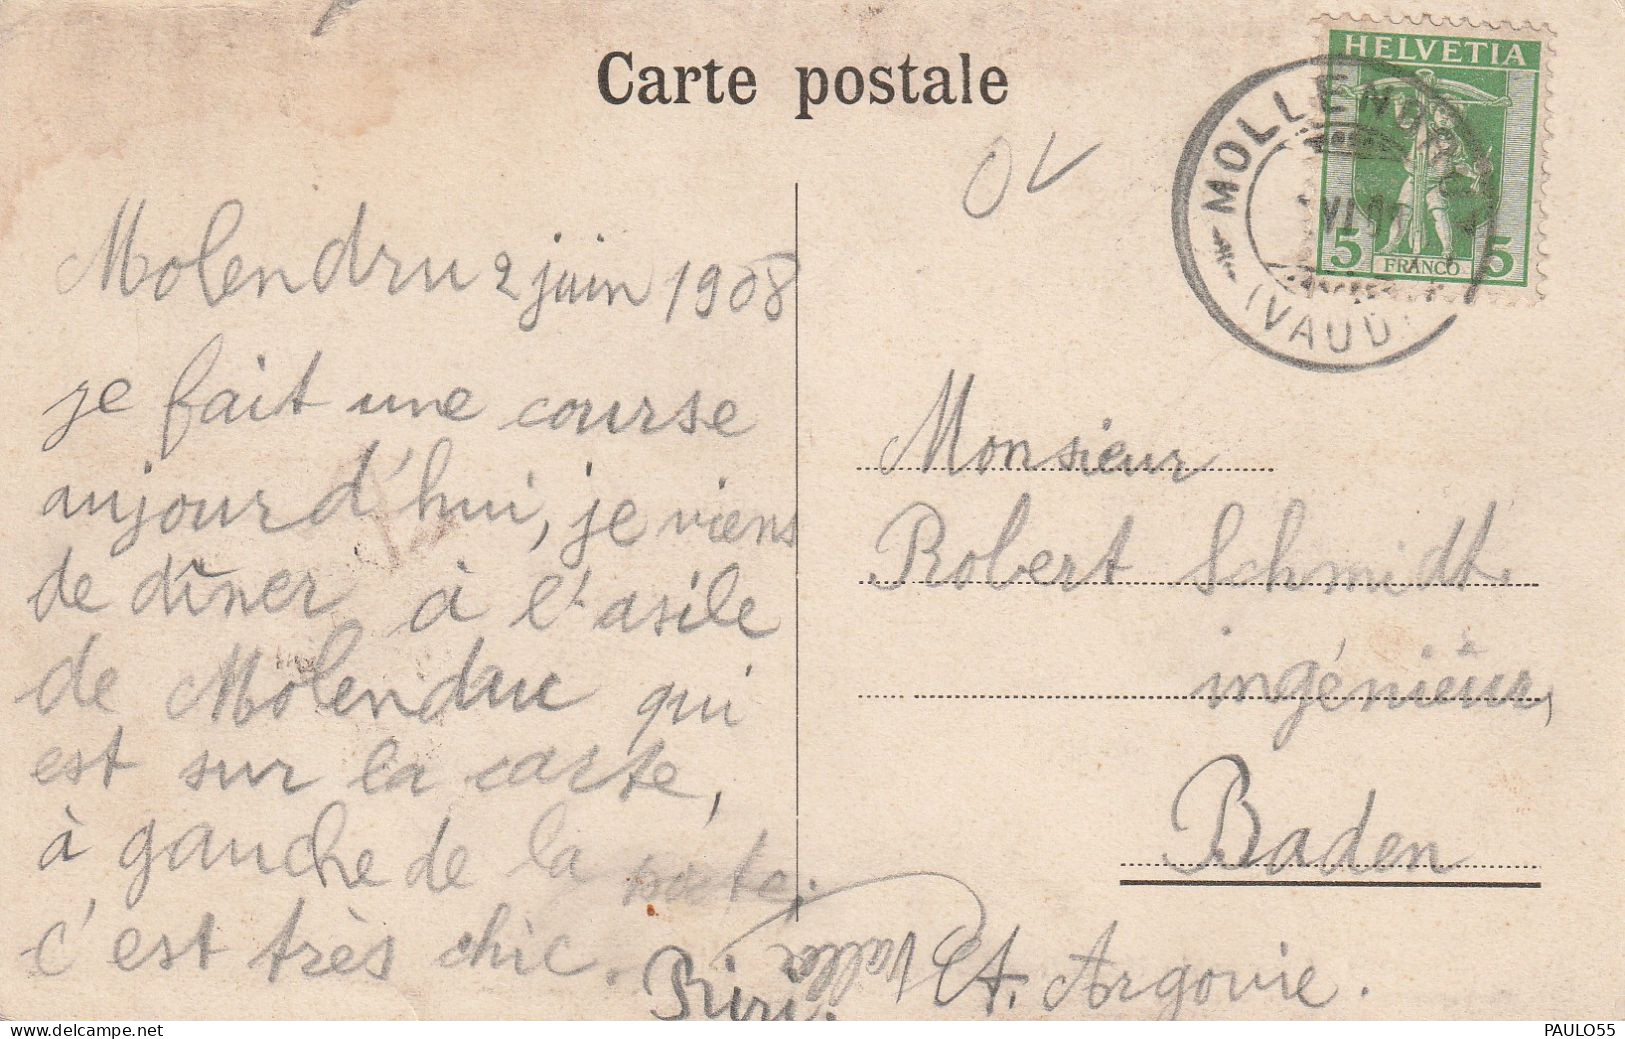 Carte postale
HELVETIA
5 FRANCO 5
MOLLENDRUZ
VI.0
(VAUD)
OV
Molendru 2 juin 1908
je fait une course
aujourd'hui, je viens
de dîner à l'asile
de Molenduc qui
est sur la carte,
à gauche de la porte.
c'est très chic.
Riri.
Monsieur
Robert Schmidt.
ingénieur,
Baden
Ct. Argovie.
PAULO55